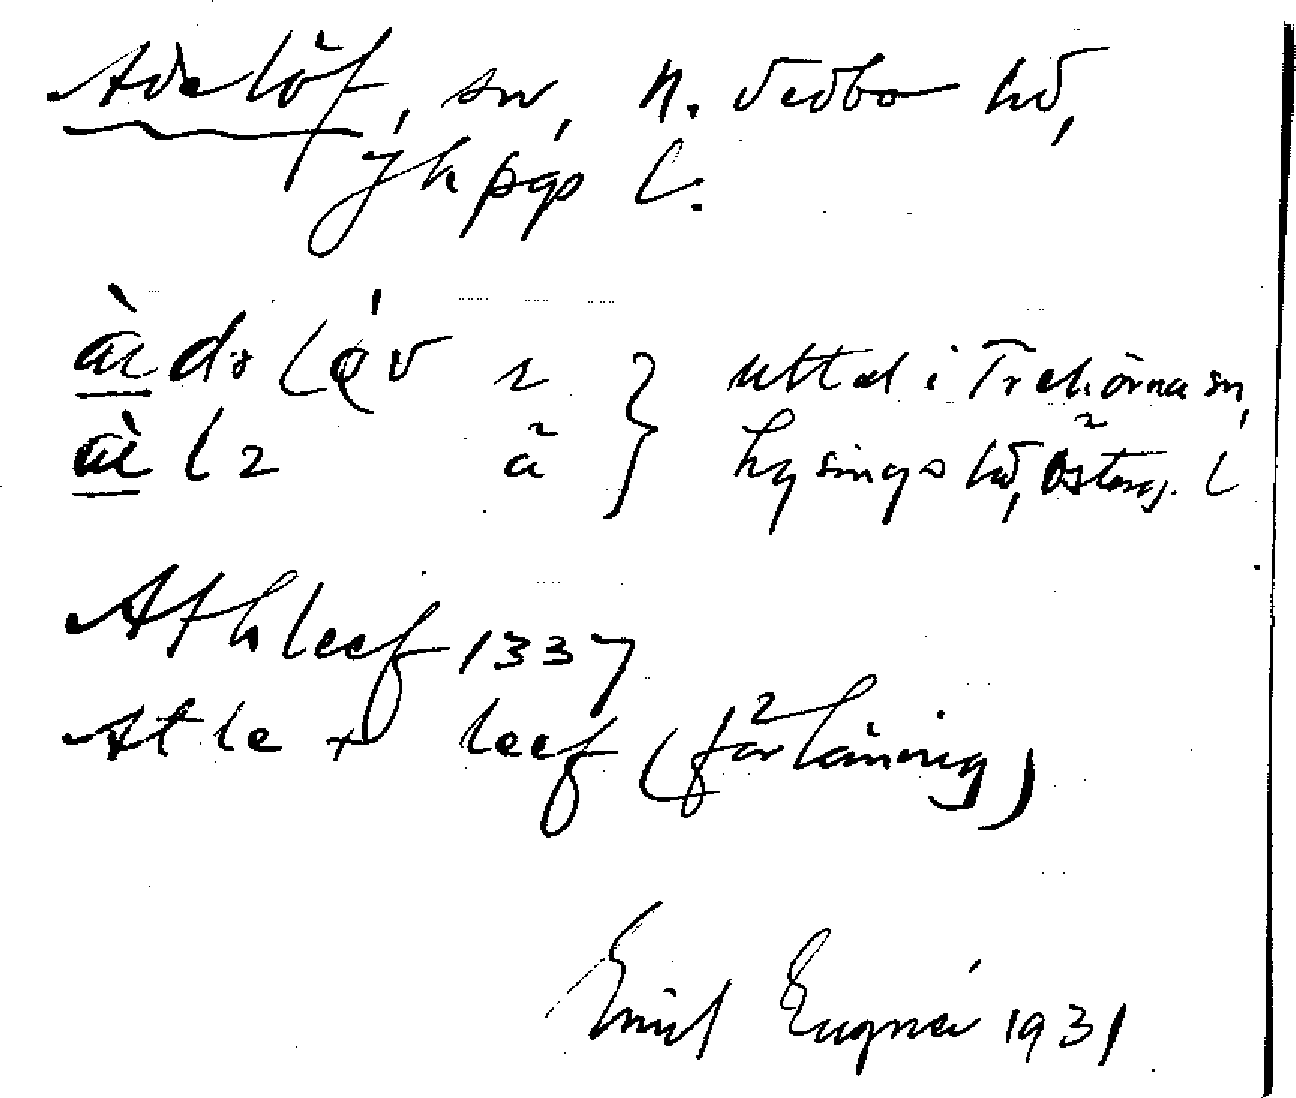 Adelöf, sn, N. Vedbo hd,
Jkpgs l.
àdəlǫ́v ã } uttal i Trehörna sn,
àlə ã } Lysings hd, Österg. l
Athleef 1337
Atle + leef (förläning)
Emil Eugné 1931